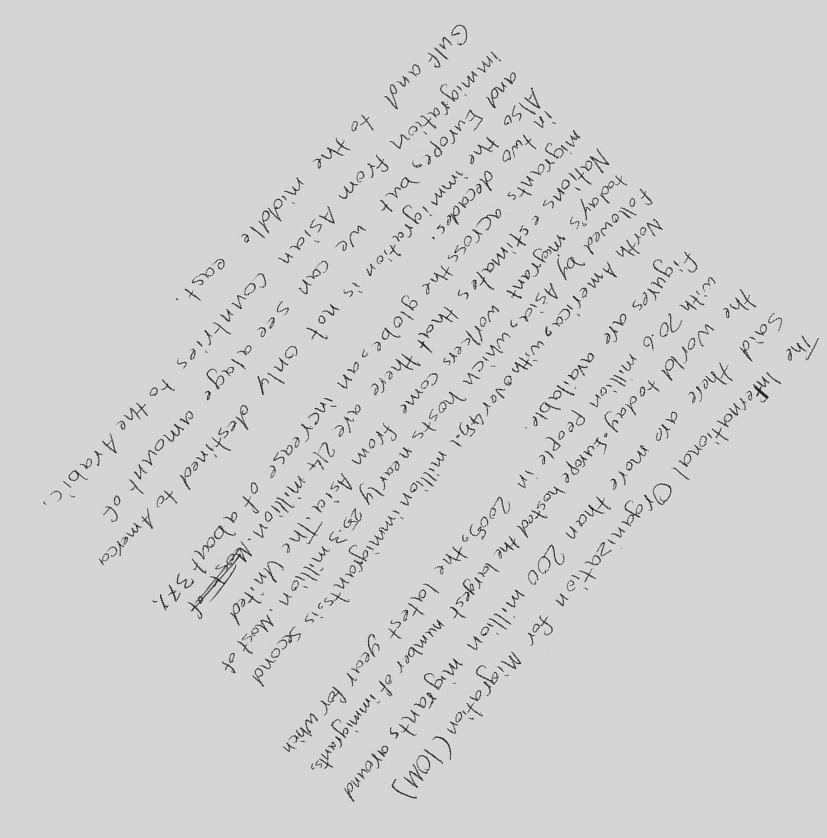 The International Organization for Migration (IOM)
said there are more than 200 million migrants around
the world today. Europe hosted the largest number of immigrants,
with 70.6 million people in 2005, the latest year for which
figures are available.
North America, with over 45.1 million immigrants, is second
followed by Asia, which hosts nearly 25.3 million. Most of
today's migrant workers come from Asia. The United
Nations estimates that there are 214 million. Most of
migrants across the globe, an increase of about 37%
in two decades.
Also the immigration is not only destined to America
and Europe, but we can see alage amount of
immigration from Asian countries to the Arabic.
Gulf and to the middle east.